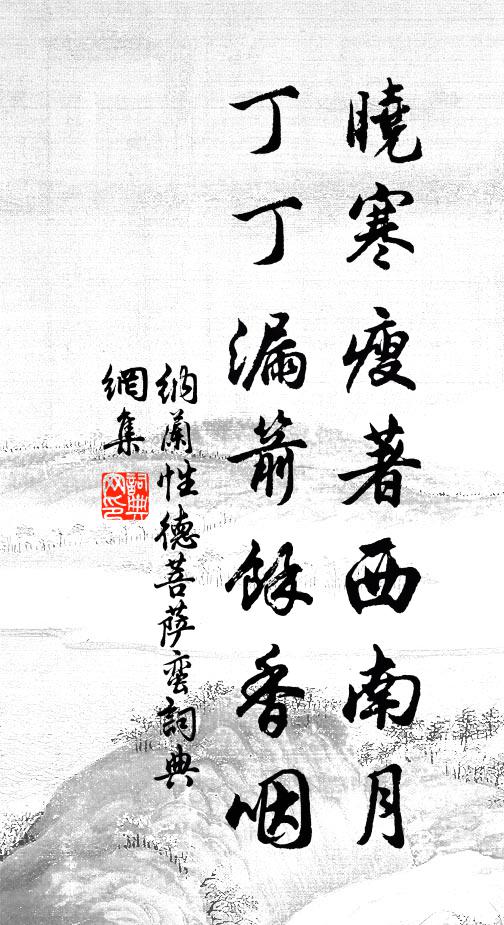 曉寒瘦著西南月
丁丁漏箭餘香咽
納蘭性德菩薩蠻詞典
網集
詞典
网印